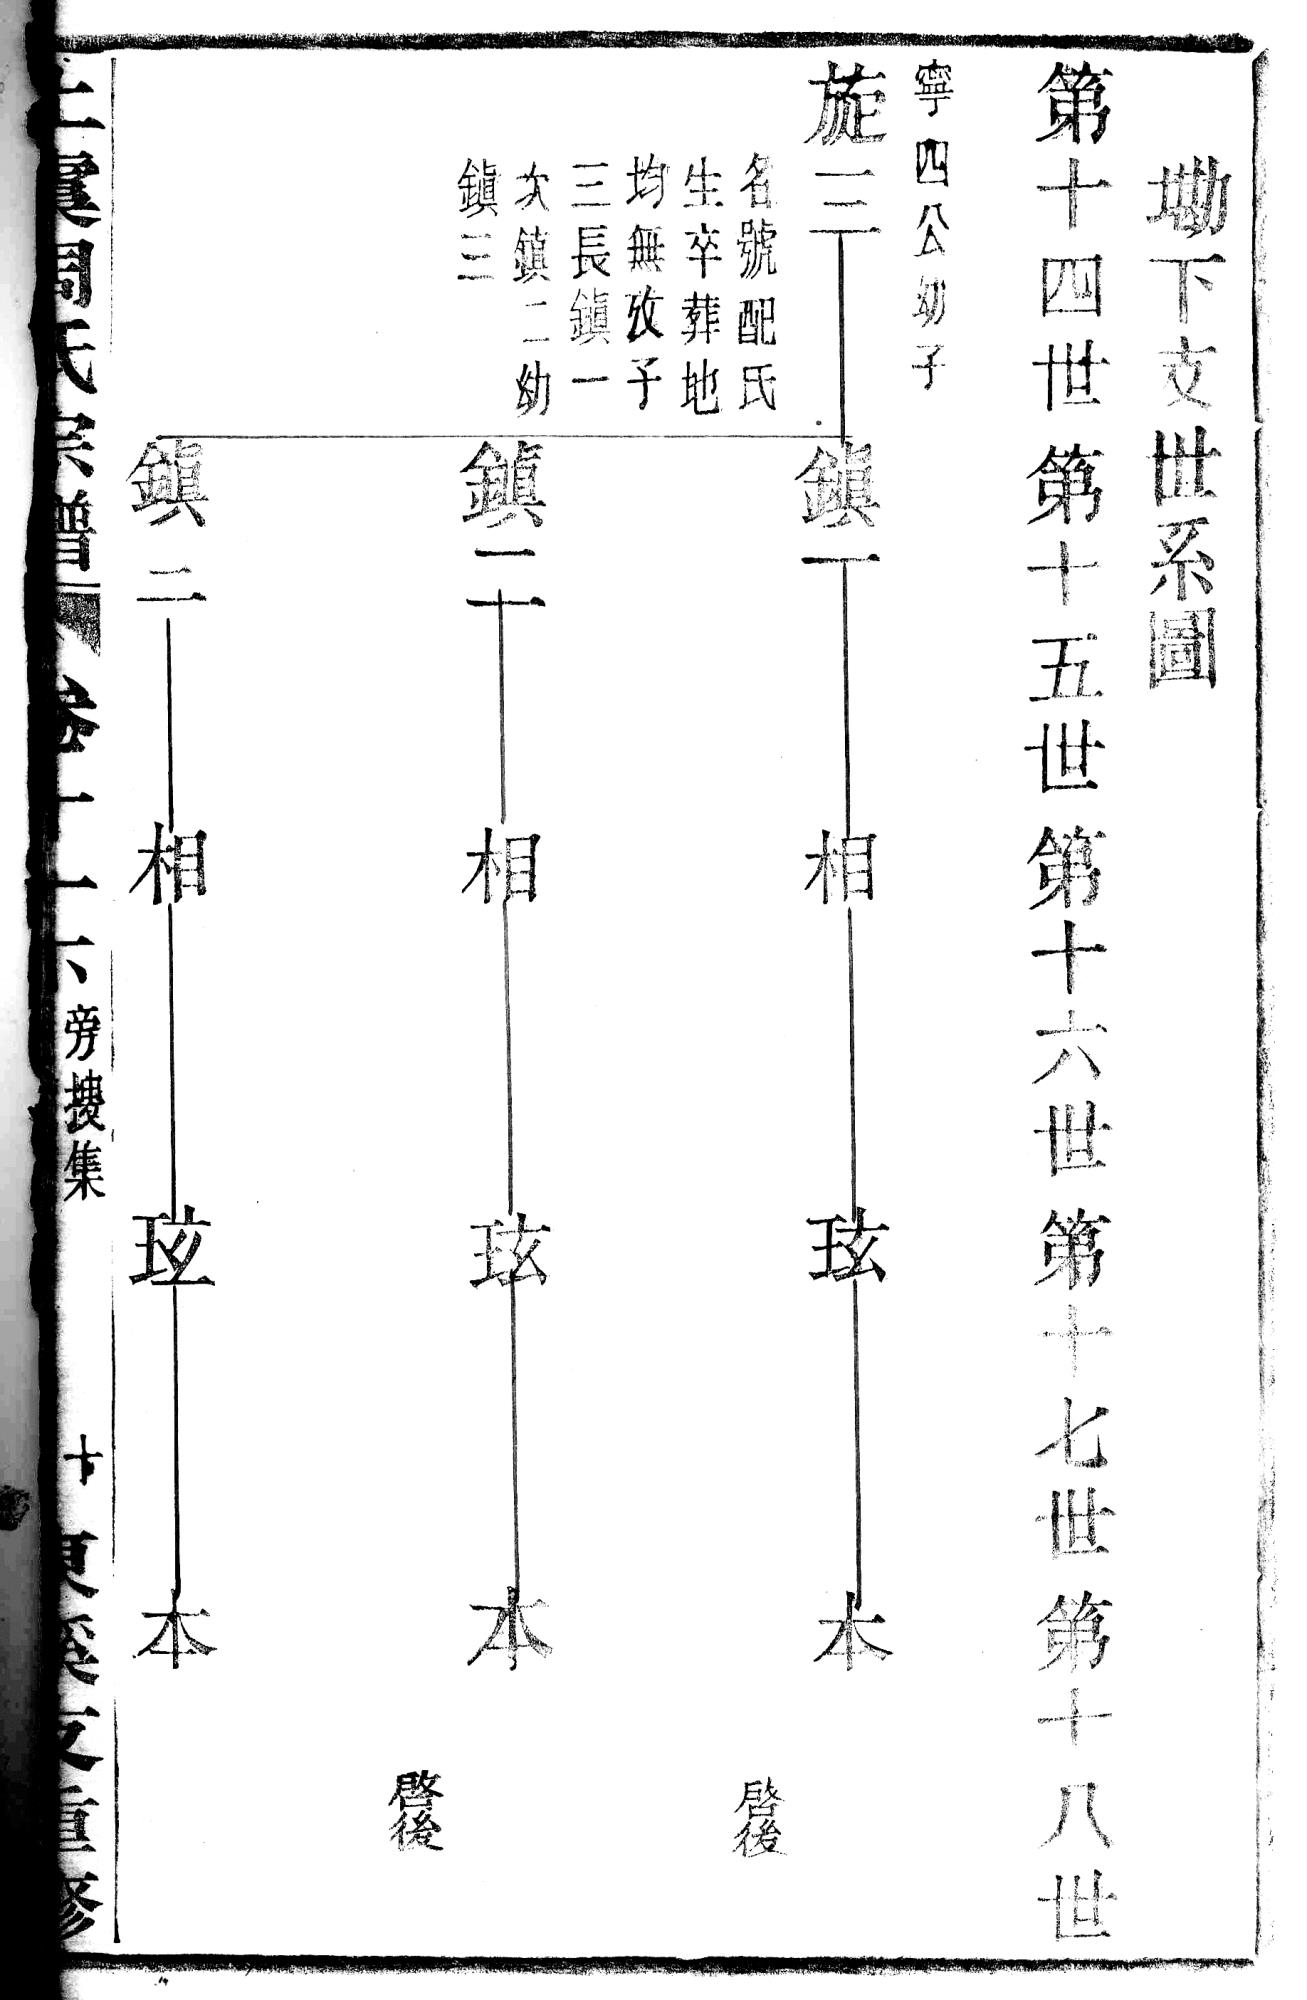 墈下支世系圖
第十四世第十五世第十六世第十七世第十八世
寧四公幼子
旋三
鎮一
相
玹
本
名號配氏
生卒葬地
均無攷子
三長鎮一
次鎮二幼
鎮三
啓後
鎮三
相
玹
本
啓後
鎮二
相
玹
本
上虞周氏宗譜
旁搜集
重修